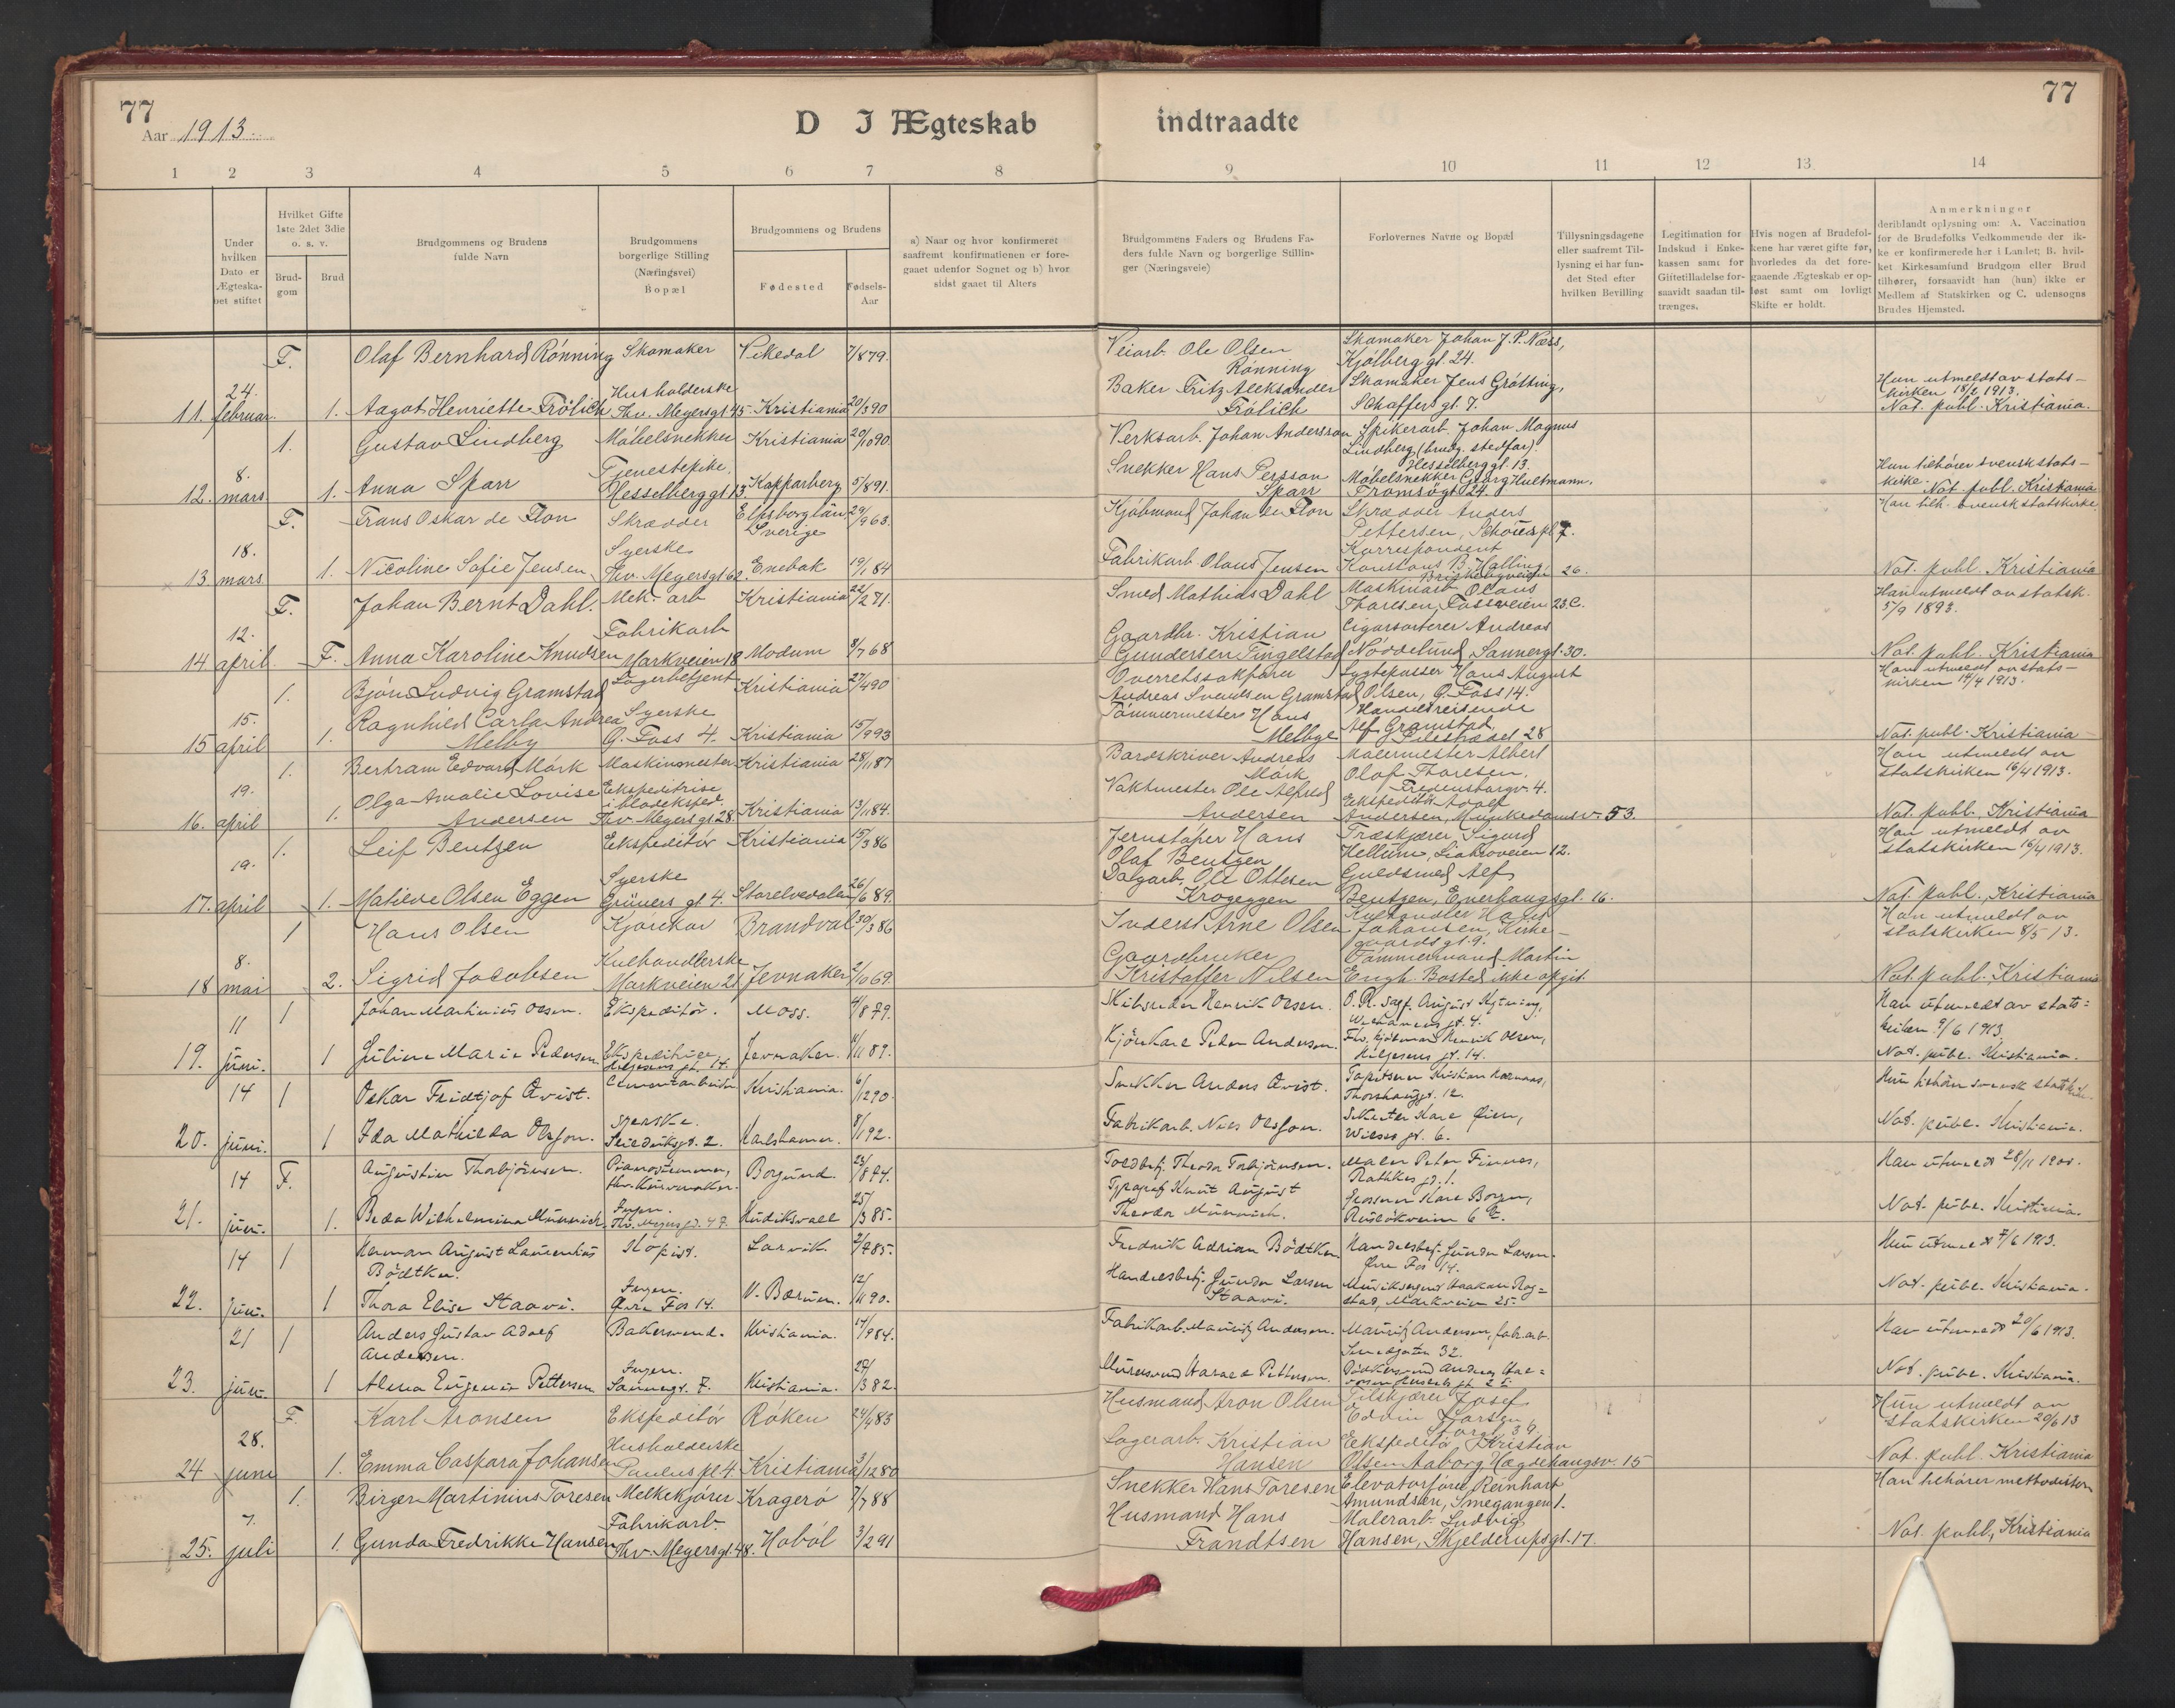 77
Aar 1913
D I Ægteskab indtraadte
77
1 2 3 4 5 6 7 8 9 10 11 12 13 14
Under hvilken Dato er Ægteskabet stiftet
Hvilket Gifte 1ste 2det 3die o. s. v.
Brudgom
Brud
Brudgommens og Brudens fulde Navn
Brudgommens borgerlige Stilling (Næringsvei) Bopæl
Brudgommens og Brudens
Fødested
Fødsels-Aar
a) Naar og hvor konfirmeret saafremt konfirmationen er foregaaet udenfor Sognet og b) hvor sidst gaaet til Alters
Brudgommens Faders og Brudens Faders fulde Navn og borgerlige Stillinger (Næringsveie)
Forlovernes Navne og Bopæl
Tillysningsdagene eller saafremt Tillysning ei har fundet Sted efter hvilken Bevilling
Legitimation for Indskud i Enkekassen samt for Giftetilladelse forsaavidt saadan tiltrænges.
Hvis nogen af Brudefolkene har været gifte før, hvorledes da det foregaaende Ægteskab er opløst samt om lovligt Skifte er holdt.
Anmerkninger
deriblandt oplysning om: A. Vaccination for de Brudefolks Vedkommende der ikke er konfirmerede her i Landet; B. hvilket Kirkesamfund Brudgom eller Brud tilhører, forsaavidt han (hun) ikke er Medlem af Statskirken og C. udensogns Brudes Hjemsted.
F. Olaf Bernhard Rönning Skomaker Vikedal 7/8 79. Veiarb. Ole Olsen Rönning Skomaker Johan J. P. Næss, Kjölberggt. 24.
11. 24. februar. 1. Aagot Henriette Frölich Husholderske Thv. Meyersgt 45. Kristiania 20/3 90 Baker Fritz Aleksander Frölich Skomaker Jens Grötting, Schaffers gt. 7. Hun utmeldt av statskirken 18/2 1913. Not. publ. Kristiania.
1. Gustav Lindberg Möbelsnekker Kristiania 20/10 90. Verksarb. Johan Andersson Spikerarb. Johan Magnus Lindberg (brudg. stedfar). Hesselberggt. 13.
12. 8. mars 1. Anna Sparr Tjenestepike. Hesselberggt 13. Kopparberg 5/8 91. Snekker Hans Persson Sparr Möbelsnekker Georg Hultmann. Tromsögt. 24. Hun tilhörer svensk statskirke. Not. publ. Kristiania
F. Frans Oskar de Flon Skrædder Elfsborglän Sverige 29/9 63. Kjöbmand Johan de Flon Skrædder Anders Pettersen, Schous pl 7. Han tilh. svensk statskirke
13 18. mars 1. Nicoline Sofie Jensen Syerske Thv. Meyersgt 62. Enebak 19/1 84 Fabrikarb Olaus Jensen Korrespondent Konstans B. Halling, Briskebyveien 26. Not. publ. Kristiania
F. Johan Bernt Dahl. Mek- arb Kristiania 22/2 71. Smed Mathias Dahl Maskinarb. Olaus Thoresen, Fossveien 23.C. Han utmeldt av statsk. 5/9 1893.
14 12. april F. Anna Karoline Knudsen Fabrikarb Markveien 18 Modum 8/7 68 Gaardbr. Kristian Gundersen Tingelstad Cigarsorterer Andreas Nöddelund, Sannergt. 30. Not. publ. Kristiania
1. Björn Ludvig Gramstad Lagerbetjent Kristiania 27/4 90 Overretssakförer Andreas Svendsen Gramstad Lygtepasser Hans August Olsen, Ö. Foss 14. Han utmeldt av statskirken 14/4 1913.
15 15. april 1. Ragnhild Carla Andrea Melby Syerske Ö. Foss 4. Kristiania 15/9 93 Tömmermester Hans Melbye Handelsreisende Alf Gramstad, Lilestrædet 28 Not. publ. Kristiania
1. Bertram Edvard Mörk Maskinmester Kristiania 28/11 87 Bardskriver Andreas Mörk Malermester Albert Olaf Thoresen, Fredensborgv. 4. Han utmeldt av statskirken 16/4 1913.
16. 19. april 1. Olga Amalie Lovise Andersen Ekspeditrise i bladeksped. Thv. Meyersgt 28. Kristiania 13/11 84. Vaktmester Ole Alfred Andersen Ekspeditör Adolf Andersen, Munkedamsv. 53. Not. publ. Kristiania
1. Leif Bentzen Ekspeditör Kristiania 15/3 86 Jernstöper Hans Olaf Bentzen Træskjærer Sigurd Hellum, Liabroveien 12. Han utmeldt av statskirken 16/4 1913.
17. 19. april 1. Matilde Olsen Eggen Syerske Grüners gt. 4. Storelvedalen 26/6 89. Dagarb. Ole Ottesen Krogeggen Guldsmed Alf Bentzen, Enerhaugsgt. 16. Not. publ. Kristiania
1 Hans Olsen Kjörekar Brandval 30/3 86 Inderst Arne Olsen Kulhandler Hans Johansen, Kirkegaardsgt. 9. Han utmeldt av statskirken 8/5 13.
18 8. mai 2. Sigrid Jacobsen Kulhandlerske Markveien 21 Jevnaker 2/10 69. Gaardbruker Kristoffer Nilsen Tömmermand Martin Engh. Bosted ikke opgit. Not. publ. Kristiania
1 Johan Martinius Olsen. Ekspeditör. Moss. 4/8 79. Skibsreder Henrik Olsen. Han utmeldt av statskirken 9/6 1913.
19. 11 juni. 1 Juline Marie Pedersen Ekspeditrise, gt. 14. Jevnaker. 11/11 89. Kjörekarl Peder Andersen. Fhv. kjöbmann Henrik Olsen, gt. 14. Not. publ. Kristiania.
14 1 Oskar Fridtjof Qvist. Cementarbeider Kristiania. 6/12 90. Snekker Anders Qvist. Tapetserer Kristian Thorshauggt. 12. Hun tilhörer svensk statsk.
20. juni. 1 Ida Mathilda Olsson. Syerske. Seilduksgt. 2. Karlshamn. 8/1 92. Fabrikarb. Nils Olsson. Karl Öien, Wilses gt. 6. Not. publ. Kristiania.
14 F. Augustin Thorbjörnsen. Pianostemmer, fhv. Kurvmaker. Borgund. 23/8 74. Toldbetj. Theodor Torbjörnsen. Maler Peter Finnes, Rathkes gt. 1. Han utmeldt 28/11 1900.
21. juni. 1. Beda Wilhelmina Münnich. Ingen. Thv. Meyers gt. 47. Hudiksvall 25/3 85. Typograf Knut August Theodor Münnich. Grosserer Karl Borgen, Ruselökveien 6 Not. publ. Kristiania.
14 1 Herman August Laurentius Bödtker. Kopist. Larvik. 2/7 85. Fredrik Adrian Bödtker Handelsbetj. Gunder Larsen. Övre Fos 14. Hun utmeldt 7/6 1913.
22. juni. 1 Thora Elise Staavi. Ingen. Övre Fos 14. V. Bærum. 12/11 90. Handelsbetj. Gunder Larsen Staavi. Haakon Rogstad, Markveien 25. Not. publ. Kristiania.
21 1 Anders Gustav Adolf Andersen. Bakersvend. Kristiania. 14/9 84. Fabrikarb. Mauritz Andersen. Mauritz Andersen, fabr.arb. Smedgaten 32. Han utmeldt 20/6 1913.
23. juni. 1 Alma Eugenie Pettersen Ingen. Sannergt. 7. Kristiania. 29/3 82. Murersvend Harald Pettersen. Not. publ. Kristiania.
F. Karl Aronsen Ekspeditör Röken 24/4 83 Husmand Aron Olsen Josef Edvin Larsen Storgt 39. Hun utmeldt av statskirken 20/6 13
24 28. juni 1. Emma Caspara Johansen Husholderske Paulus pl. 4 Kristiania 3/12 80 Lagerarb. Kristian Hansen Ekspeditör Kristian Olsen Aaborg Hægdehaugsv. 15 Not. publ. Kristiania
1. Birger Martinius Toresen Melkekjörer Kragerö 7/7 88 Snekker Hans Toresen Elevatorförer Reinhart Amundsen, Smegangen 1. Han tilhörer methodistern
25. 7. juli 1. Gunda Fredrikke Hansen Fabrikarb. Thv. Meyersgt. 48. Haböl 3/2 91 Husmand Hans Frandtsen Malerarb. Ludvig Hansen, Skjelderupsgt. 17. Not. publ. Kristiania